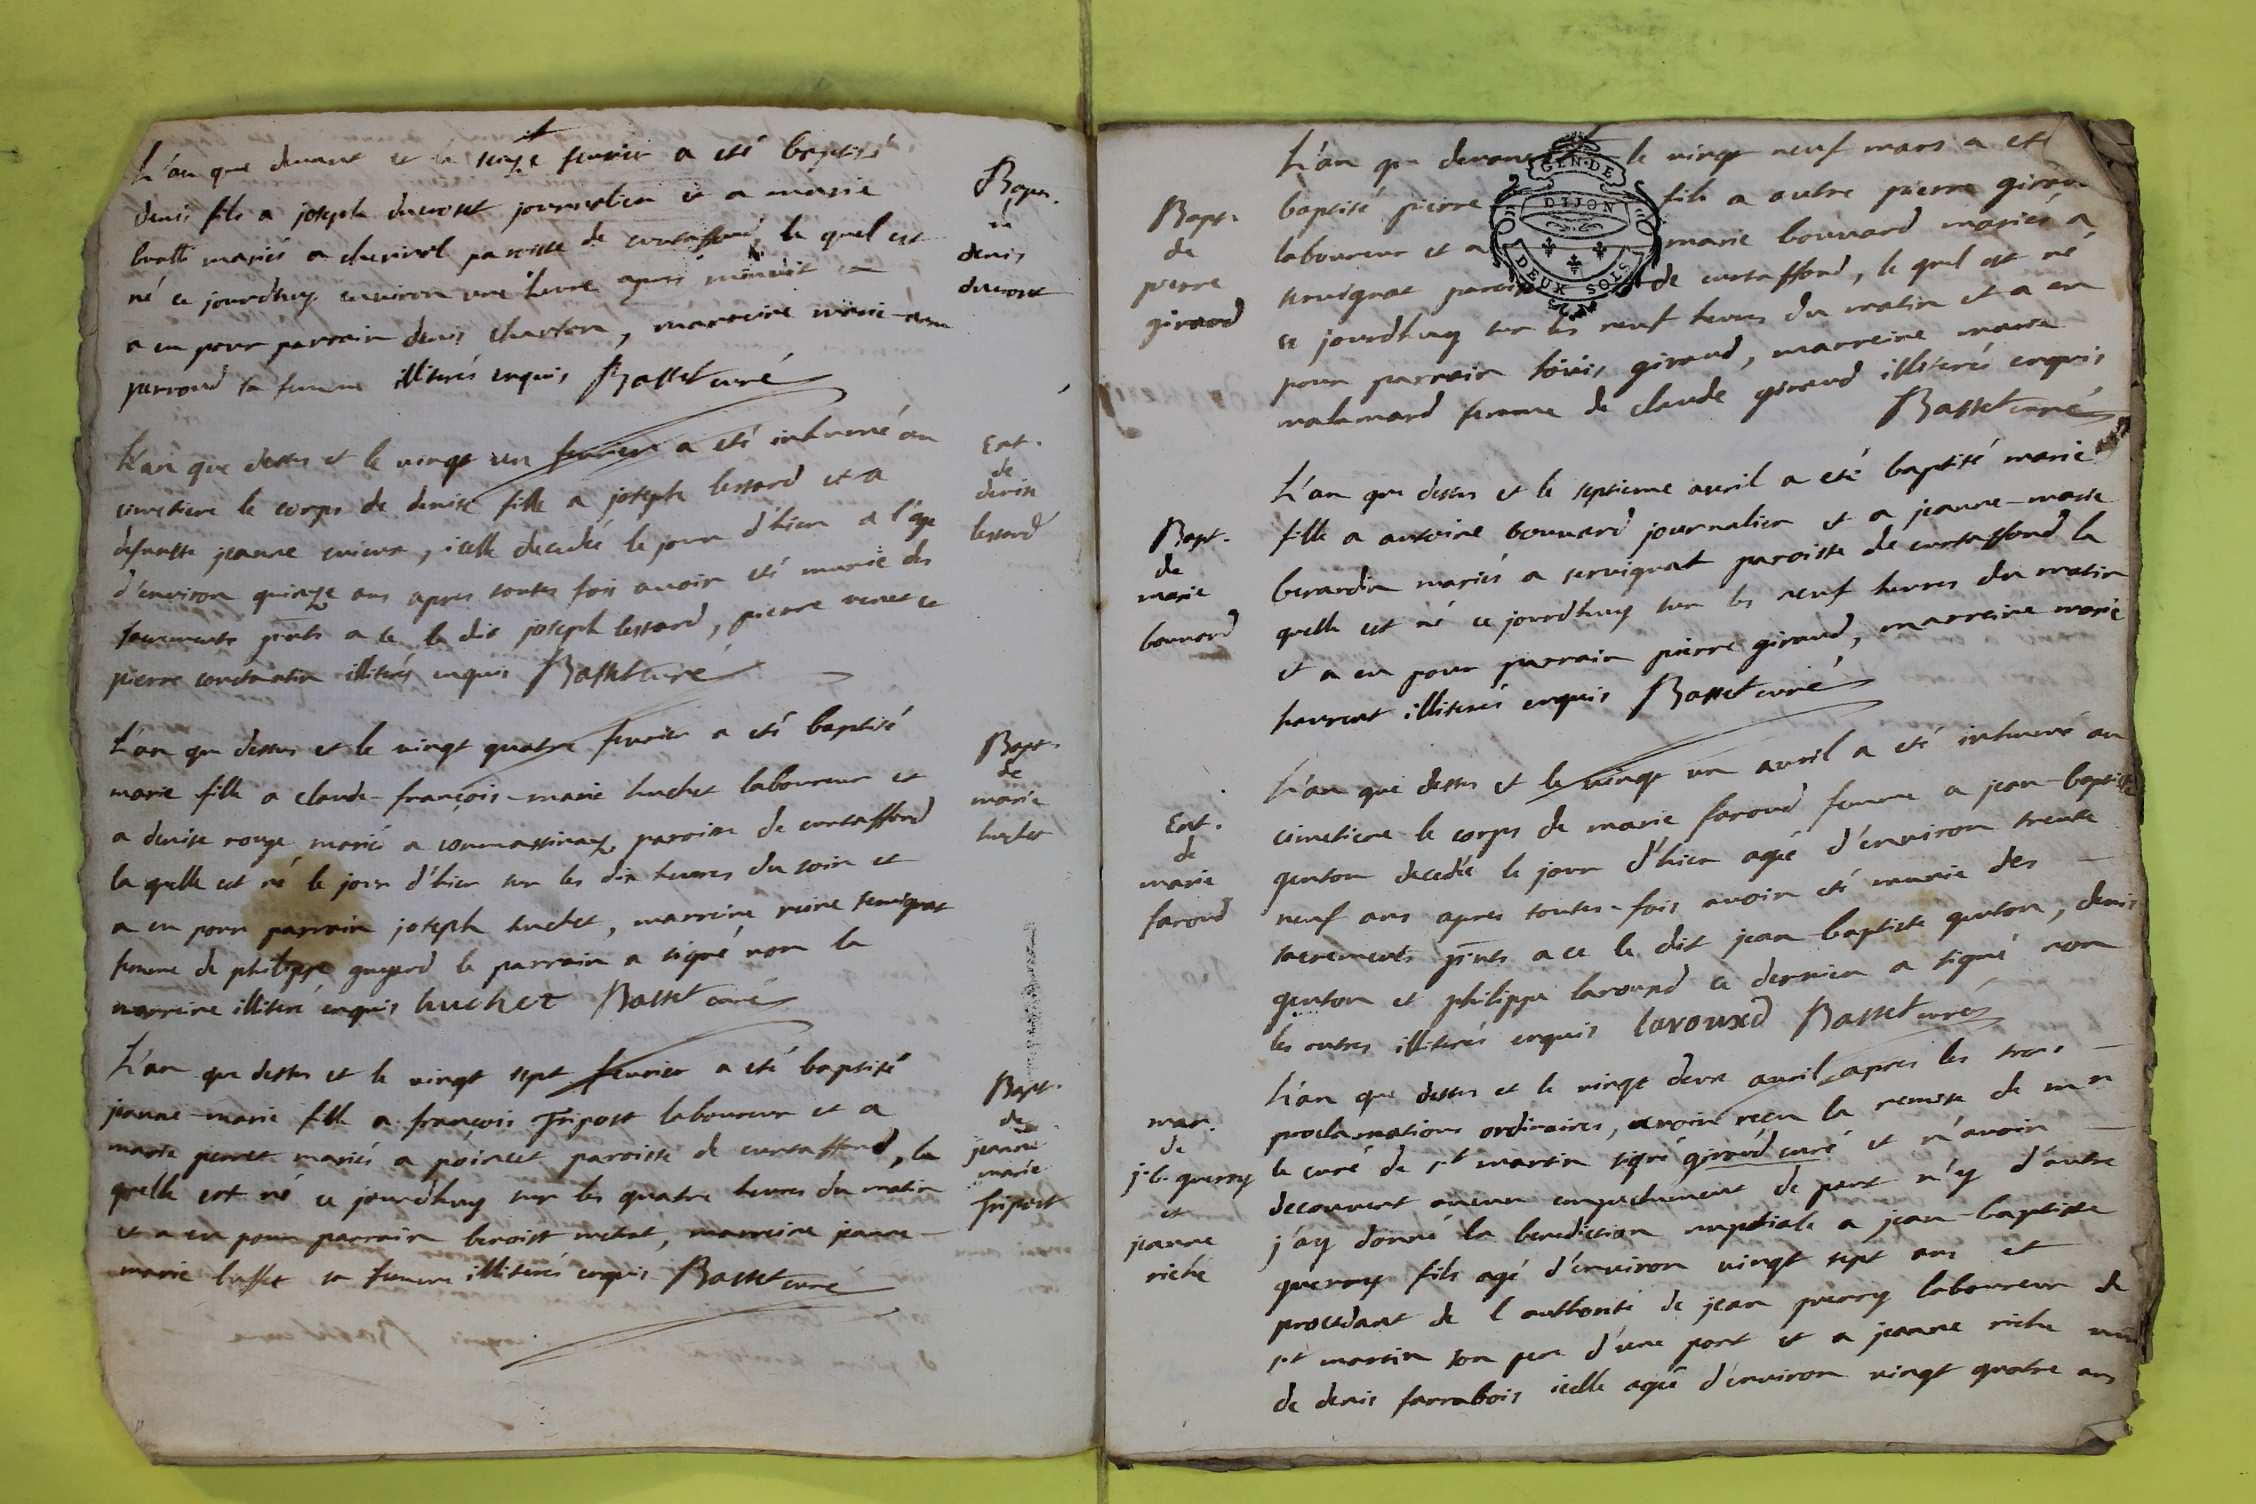 L'an que devant et le seize fevrier a eté baptisé
denis fils a joseph ducrost journalier et a marie
mariés a paroisse de curtaffond, le quel est
né ce jourdhuy environ une heure apres minuit
a eu pour parrain denis charton, marreine
perroud sa femme illiterés enquis Basset curé
Bapt.
de
denis
ducrost
L'an que dessus et le vingt un fevrier a eté inhumé au
cimetiere le corps de denise fille a joseph lessard et a
deffuncte jeanne , icelle decedée le jour d'hier a l'age
d'environ quinze ans apres toutes fois avoir eté munie des
sacrements pnts a ce le dit joseph lessard, pierre venet et
pierre constantin illiterés enquis Basset curé
Ent.
de
denise
lessard
L'an que dessus et le vingt quatre fevrier a eté baptisé
marie fille a claude-françois-marie huchet laboureur et
a denise rouge mariés a paroisse de curtaffond
la quelle est né le jour d'hier sur les dix heures du soir et
a eu pour parrain joseph huchet, marreine reine
femme de philippe guyard le parrain a signé non la
marreine illiteré enquis huchet Basset curé
Bapt.
de
marie
huchet
L'an que dessus et le vingt sept fevrier a eté baptisé
jeanne-marie fille a françois fripost laboureur et a
marie perret mariés a poincet paroisse de curtaffond, la
quelle est né ce jourdhuy sur les quatre heures du matin
et a eu pour parrain benoist , marreine jeanne
marie buffet sa femme illiterés enquis Basset curé
Bapt.
de
jeanne
marie
fripost
L'an que devant le vingt neuf mars a eté
baptisé pierre fils a autre pierre giraud
laboureur et a marie bouvard mariés a
servignat de curtaffond, le quel est né
ce jourdhuy sur les neuf heures du matin et a eu
pour parrain loüis giraud, marreine marie
malamard femme de claude giraud illiterés enquis
Basset curé
GEN. DE
DIJON
DEUX SOLS
Bapt.
de
pierre
giraud
L'an que dessus et le septieme avril a eté baptisé marie
fille a antoine bouvard journalier et a jeanne-marie
berardin mariés a servignat paroisse de curtaffond la
quelle est né ce jourdhuy sur les neuf heures du matin
et a eu pour parrain pierre giraud, marreine marie
illiterés enquis Basset curé
Bapt.
de
marie
bouvard
L'an que dessus et le vingt un avril a eté inhumé au
cimetiere le corps de marie faroud femme a jean-baptiste
genton decedée le jour d'hier agé d'environ trente
neuf ans apres toutes-fois avoir eté munie des
sacrements pnts a ce le dit jean baptiste genton, denis
genton et philippe larouxd ce dernier a signé non
les autres illiterés enquis larouxd Basset curé
Ent.
de
marie
faroud
L'an que dessus et le vingt deux avril apres les trois
proclamations ordinaires, avoir reçu la remise de mr
le curé de st martin signé giroud curé et n'avoir
decouvert aucun empechement de part n'y d'autre
j'ay donné la benediction nuptiale a jean-baptiste
guerry fils agé d'environ vingt sept ans et
procedant de l'authorité de jean guerry laboureur de
st martin son pere d'une part et a jeanne riche
de denis farrabois icelle agée d'environ vingt quatre ans
mar.
de
j.b. guerry
et
jeanne
riche